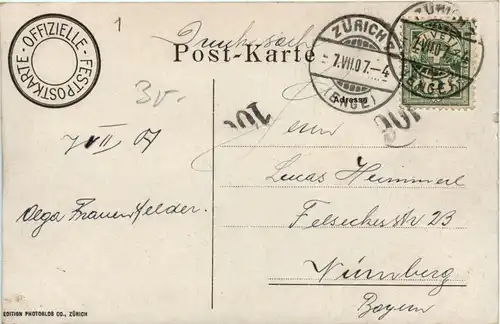 OFFIZIELLE - FESTPOSTKARTE
1
Drucksache
Post-Karte
3.-
ZÜRICH
7.VII.07.-4
(ENGE)
ZÜRICH
7.VII.07
(ENGE)
HELVETIA
Adresse
7 VII 07
Olga Frauenfelder.
Herrn
Lucas Heimmerl
Felseckerstr 23
Nürnberg
Bayern
EDITION PHOTOGLOB CO., ZÜRICH